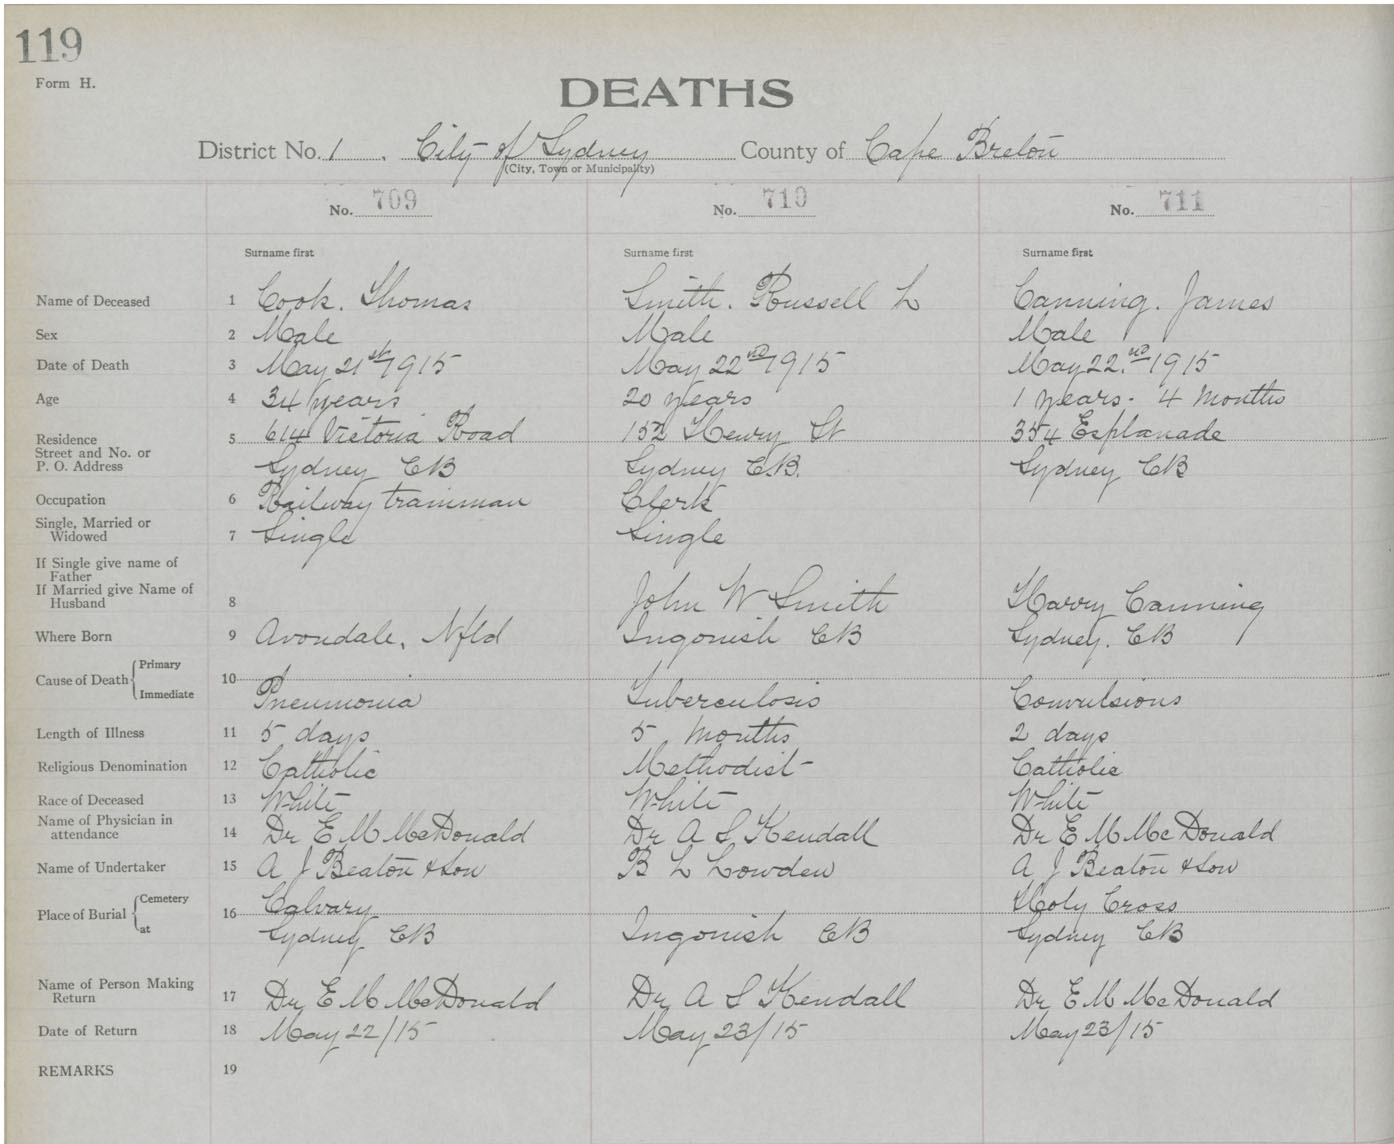 119
Form H.
DEATHS
District No. 1 . City of Sydney County of Cape Breton
(City, Town or Municipality)
No. 709 No. 710 No. 711
Surname first Surname first Surname first
Name of Deceased 1 Cook. Thomas Smith. Russell L Canning. James
Sex 2 Male Male Male
Date of Death 3 May 21st 1915 May 22nd 1915 May 22.nd 1915
Age 4 34 years 20 years 1 years - 4 Months
Residence 5 614 Victoria Road 152 Henry St 354 Esplanade
Street and No. or
P. O. Address Sydney CB Sydney C.B. Sydney CB
Occupation 6 Railway trainman Clerk
Single, Married or
Widowed 7 Single Single
If Single give name of
Father
If Married give Name of
Husband 8 John W Smith Harry Canning
Where Born 9 Avondale, Nfld Ingonish CB Sydney. CB
Cause of Death Primary 10
Immediate Pneumonia Tuberculosis Convulsions
Length of Illness 11 5 days 5 Months 2 days
Religious Denomination 12 Catholic Methodist Catholic
Race of Deceased 13 White White White
Name of Physician in
attendance 14 Dr E M McDonald Dr A S Kendall Dr E M McDonald
Name of Undertaker 15 A J Beaton & Son B L Lowden A J Beaton & Son
Place of Burial Cemetery 16 Calvary Holy Cross
at Sydney CB Ingonish CB Sydney CB
Name of Person Making
Return 17 Dr E M McDonald Dr A S Kendall Dr E M McDonald
Date of Return 18 May 22/15 May 23/15 May 23/15
REMARKS 19